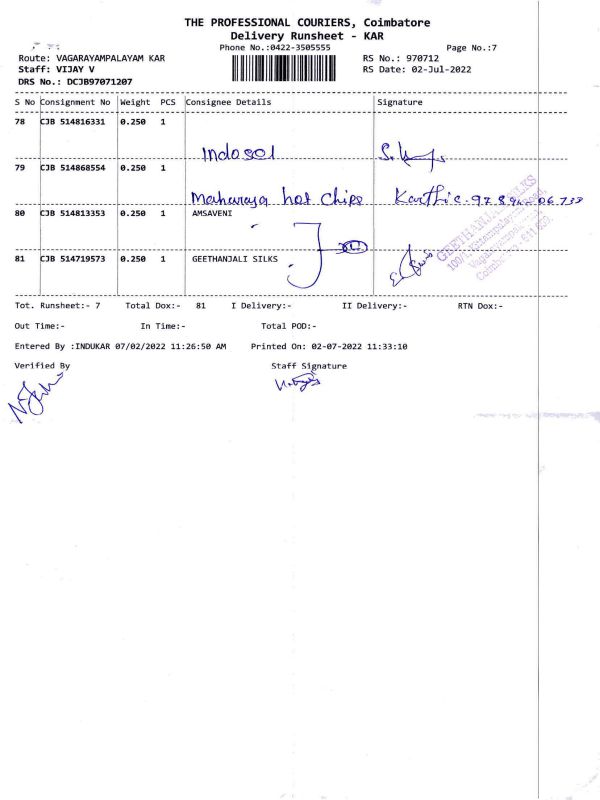 THE PROFESSIONAL COURIERS, Coimbatore
Delivery Runsheet - KAR
Phone No.:0422-3505555
Page No.:7
Route: VAGARAYAMPALAYAM KAR
RS No.: 970712
Staff: VIJAY V
RS Date: 02-Jul-2022
DRS No.: DCJB97071207
S No Consignment No Weight PCS Consignee Details Signature
78 CJB 514816331 0.250 1
Indosol
79 CJB 514868554 0.250 1
Maharaja hot chips Karthic
80 CJB 514813353 0.250 1 AMSAVENI
81 CJB 514719573 0.250 1 GEETHANJALI SILKS
GEETHANJALI SILKS
Tot. Runsheet:- 7 Total Dox:- 81 I Delivery:- II Delivery:- RTN Dox:-
Out Time:- In Time:- Total POD:-
Entered By :INDUKAR 07/02/2022 11:26:50 AM Printed On: 02-07-2022 11:33:10
Verified By Staff Signature